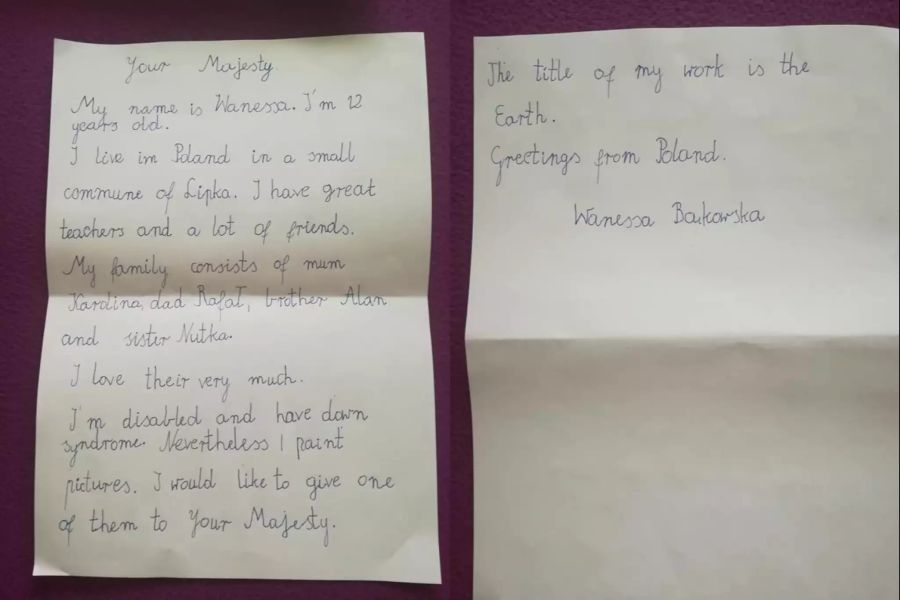 Your Majesty
My name is Wanessa. I'm 12
years old.
I live im Poland in a small
commune of Lipka. I have great
teachers and a lot of friends.
My family consists of mum
Karolina, dad Rafał, brother Alan
and sister Nutka.
I love their very much.
I'm disabled and have down
syndrome. Nevertheless I paint
pictures. I would like to give one
of them to Your Majesty.
The title of my work is the
Earth.
Greetings from Poland.
Wanessa